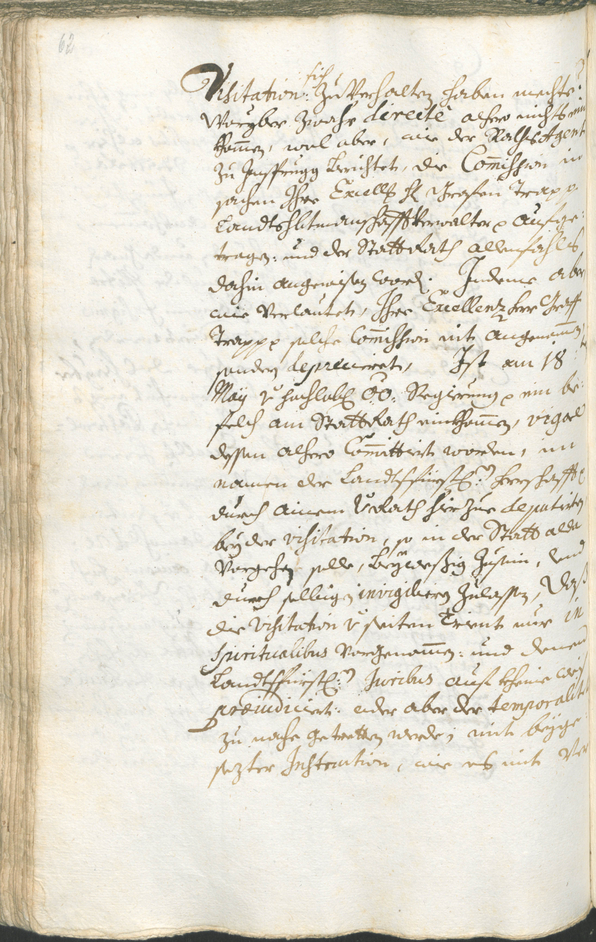 62
sich
Visitation: Zuverhalten haben mechte:
Woryber zwahr directe alhero nichts ein
khommen, wol aber, wie der Raths Agent
zu Ynsprugg berichtet, die Commission in
sachen Ihre Excell: H: Grafen Trapp
Landtshbtmanschafft Verwalter p aufge:
tragen: und der StattRath allenfahls
dahin angewisen word: Indeme aber
wie verlautet, Ihre Excellenz Herr Graff
Trapp p solche Commission nit angenommen,
sondern depreciert, Ist am 18
May v hochlobl: OÖ: Regierung p ein be
felch am StattRath einkhommen, vigore
dessen alhero Committiert worden, im
namen der Landtsfürstl: herrschafft p
durch ainen Rath hierzue deputierten
bey der visitation, so in der Statt alda
Vorgehen solle, beyweßig zusein, und
durch selbigen invigilieren zulassen, Daß
die visitation v seiten Trient nur in
spiritualibus vorgenommen: und denen
Landtsfürstl: Juribus auf kheine weis
præiudiciert: oder aber der temporalitet
zu nahe getretten werde; mit beyge
sezter Instruction, wie es mit Ver